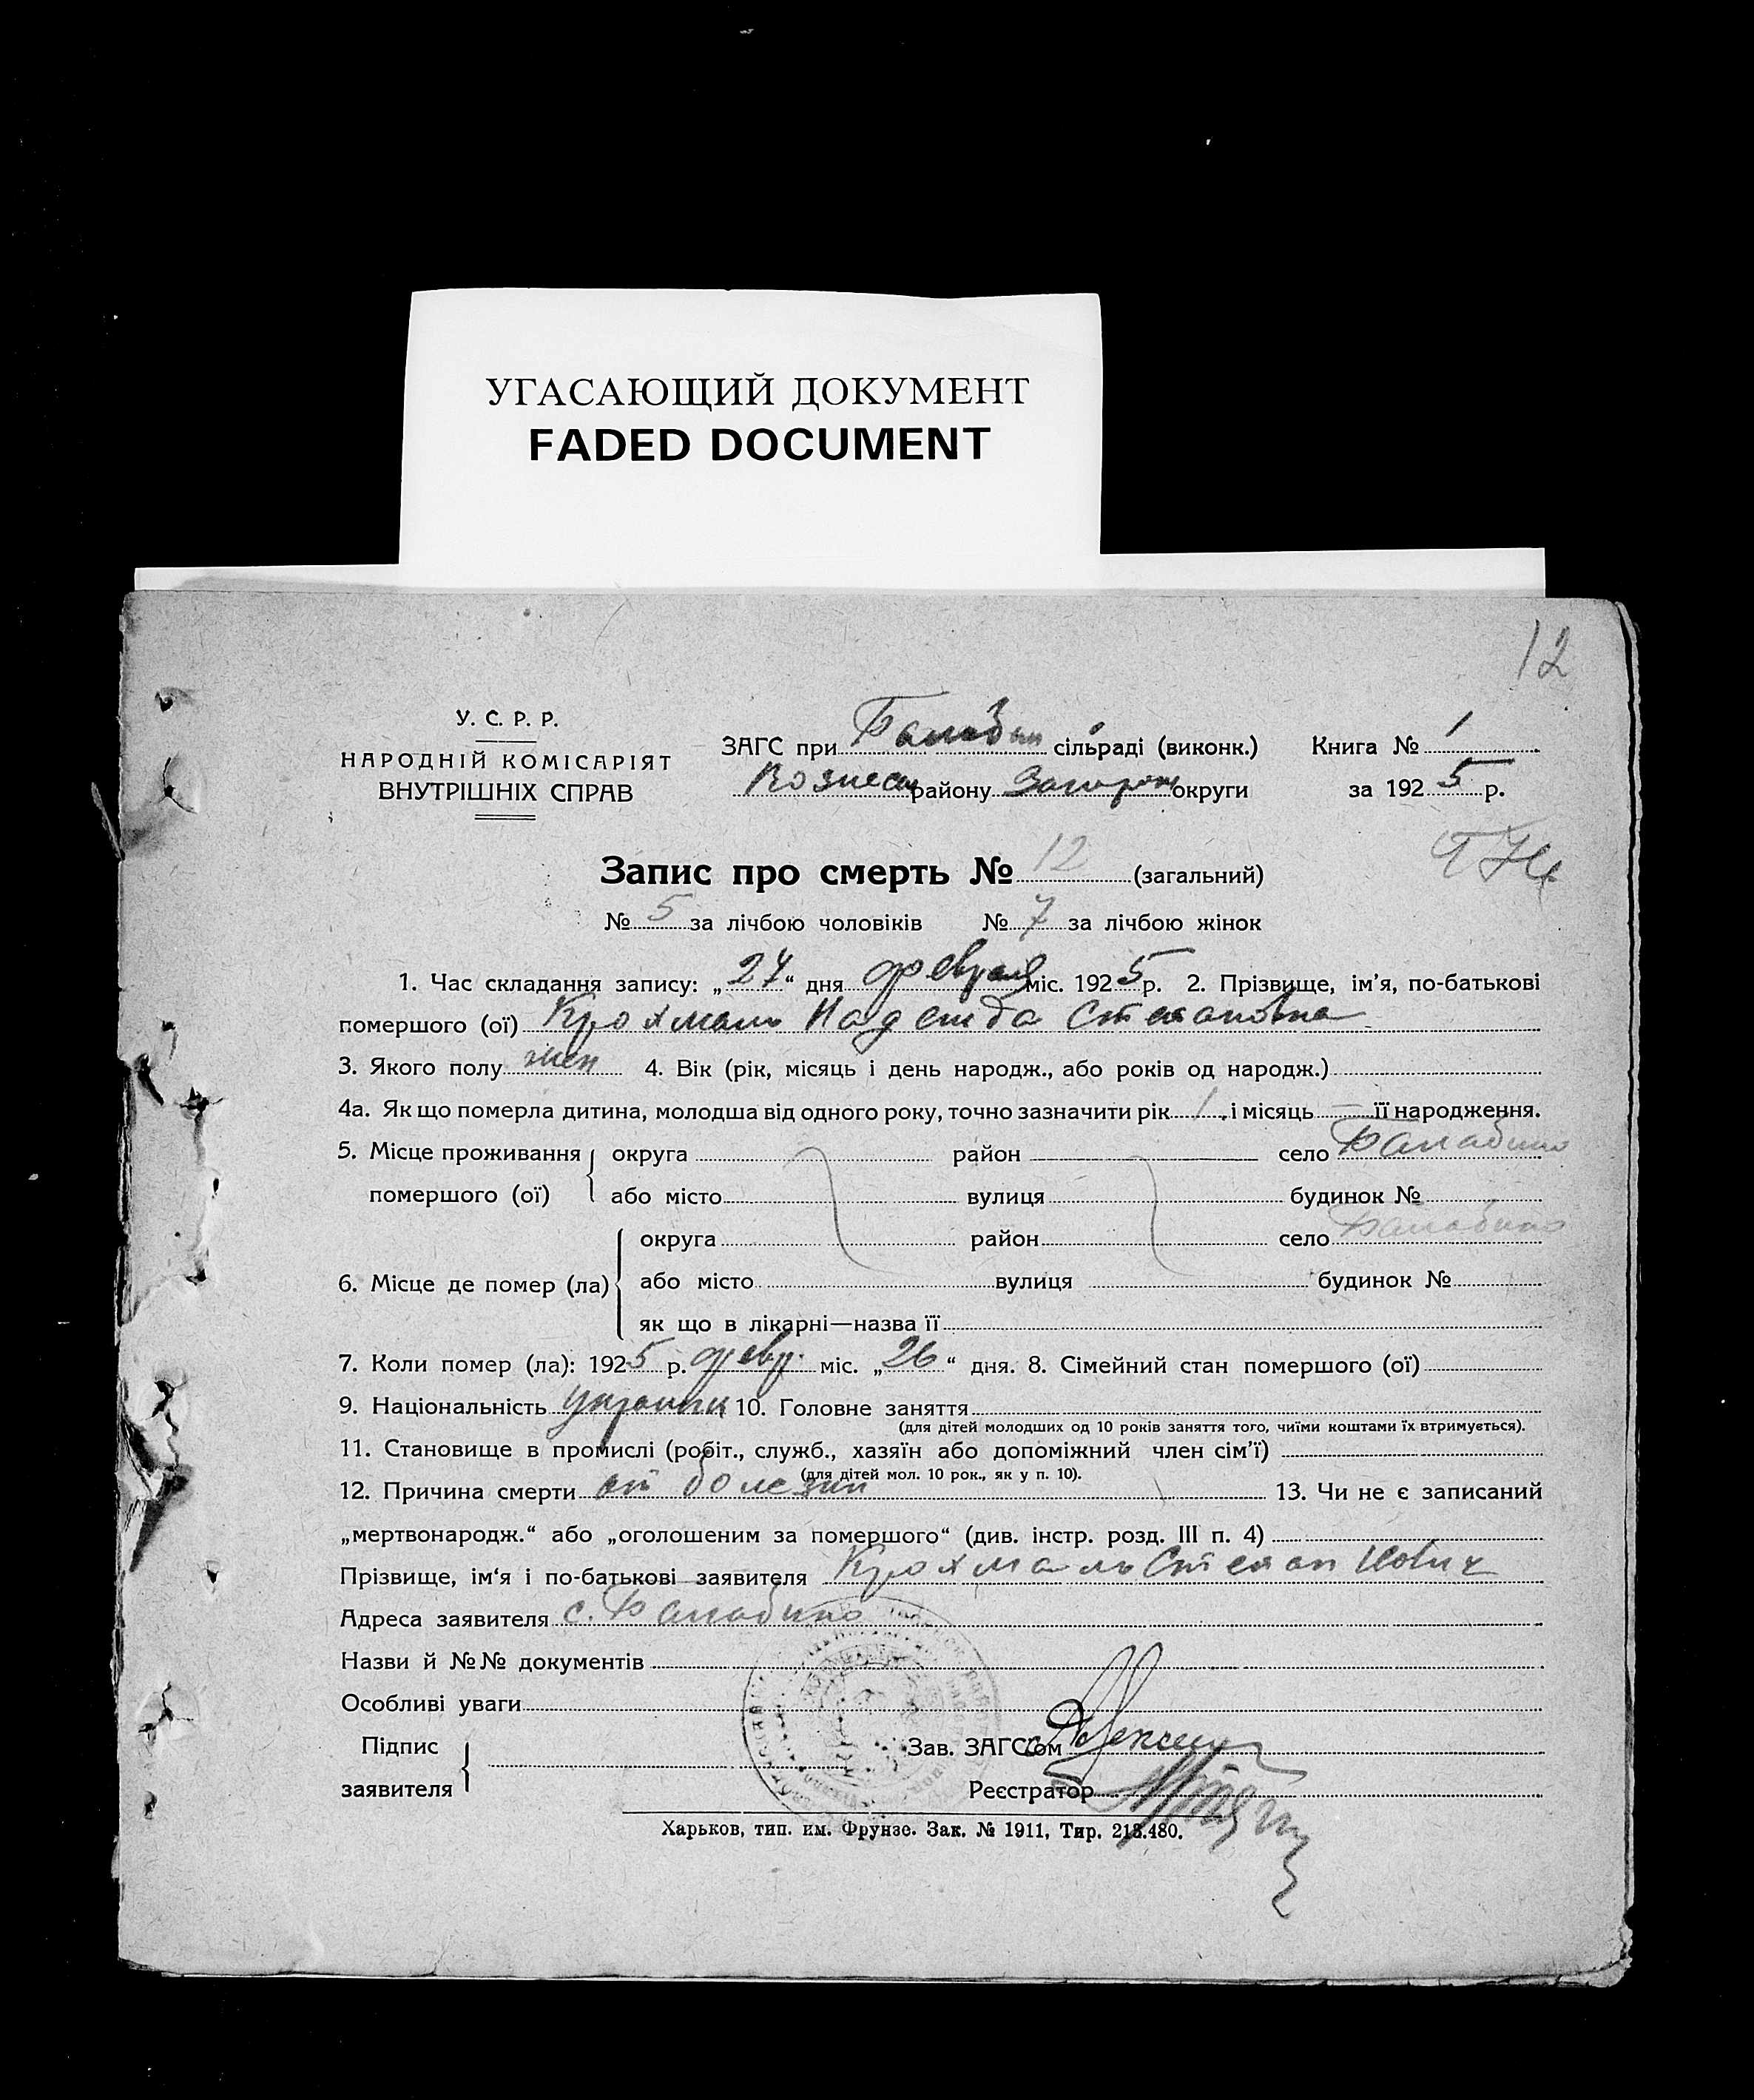 УГАСАЮЩИЙ ДОКУМЕНТ
FADED DOCUMENT
12
У. С. Р. Р.
НАРОДНІЙ КОМІСАРІЯТ
ВНУТРІШНІХ СПРАВ
ЗАГС при Балабин сільраді (виконк.) Книга № 1
Вознесен району Запорож округи за 1925 р.
Запис про смерть № 12 (загальний)
№ 5 за лічбою чоловіків № 7 за лічбою жінок
1. Час складання запису: „27“ дня февраля міс. 1925 р. 2. Прізвище, ім'я, по-батькові
помершого (ої) Крохмаль Надежда Степановна
3. Якого полу жен 4. Вік (рік, місяць і день народж., або років од народж.)
4а. Як що померла дитина, молодша від одного року, точно зазначити рік 1 і місяць — її народження.
5. Місце проживання округа район село Балабино
помершого (ої) або місто вулиця будинок №
округа район село Балабино
6. Місце де помер (ла) або місто вулиця будинок №
як що в лікарні—назва її
7. Коли помер (ла): 1925 р. февр. міс. „26“ дня. 8. Сімейний стан помершого (ої)
9. Національність украинка 10. Головне заняття
(для дітей молодших од 10 років заняття того, чиїми коштами їх втримується).
11. Становище в промислі (робіт., служб., хазяїн або допоміжний член сім'ї)
(для дітей мол. 10 рок., як у п. 10).
12. Причина смерти от болезни 13. Чи не є записаний
„мертвонародж.“ або „оголошеним за помершого“ (див. інстр. розд. III п. 4)
Прізвище, ім'я і по-батькові заявителя Крохмаль Степан
Адреса заявителя с. Балабино
Назви й №№ документів
Особливі уваги
Підпис
заявителя
Зав. ЗАГС'ом
Реєстратор
Харьков, тип. им. Фрунзе. Зак. № 1911, Тир. 213.480.